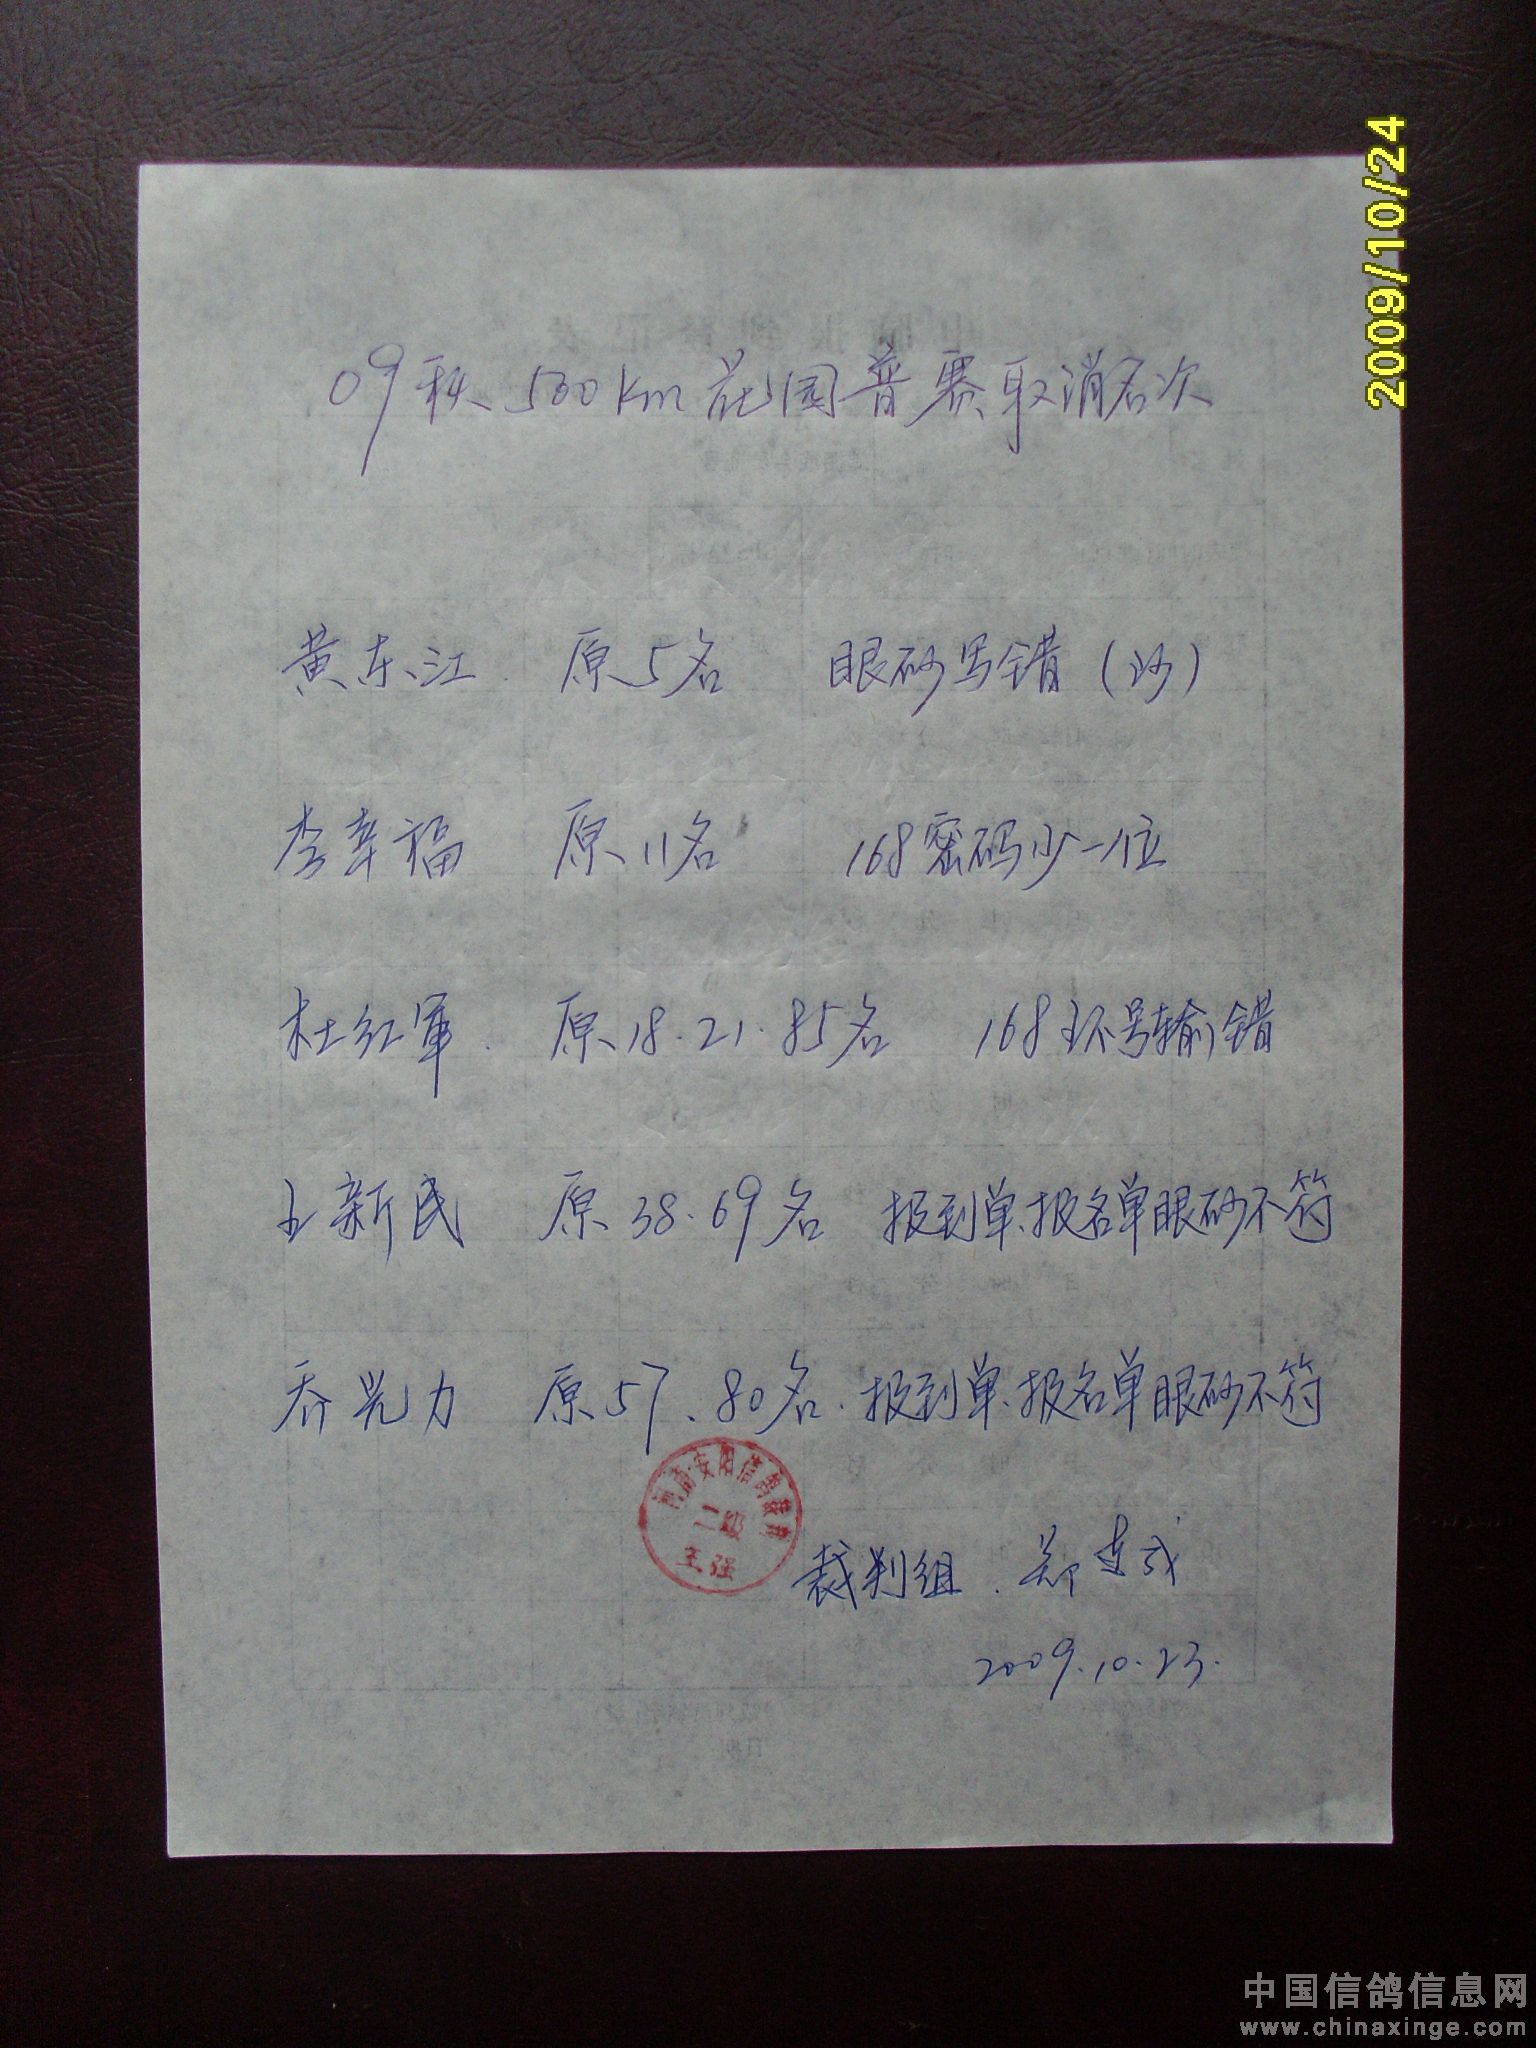 2009/10/24
09秋500km花园普赛取消名次
黄东江 原5名 眼砂写错(沙)
李幸福 原11名 168密码少一位
杜红军 原18.21.85名 168环号输错
王新民 原38.69名 报到单、报名单眼砂不符
乔光力 原57、80名、报到单、报名单眼砂不符
河南安阳信鸽裁判
二级
王强
裁判组 郑连成
2009.10.23.
中国信鸽信息网
www.chinaxinge.com